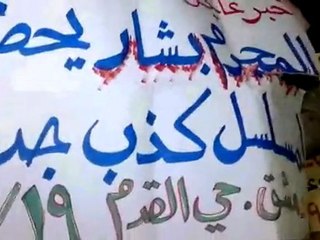 خبر عاجل
المجرم بشار يحض
مسلسل كذب جد
دمشق . حي القدم
١٩/